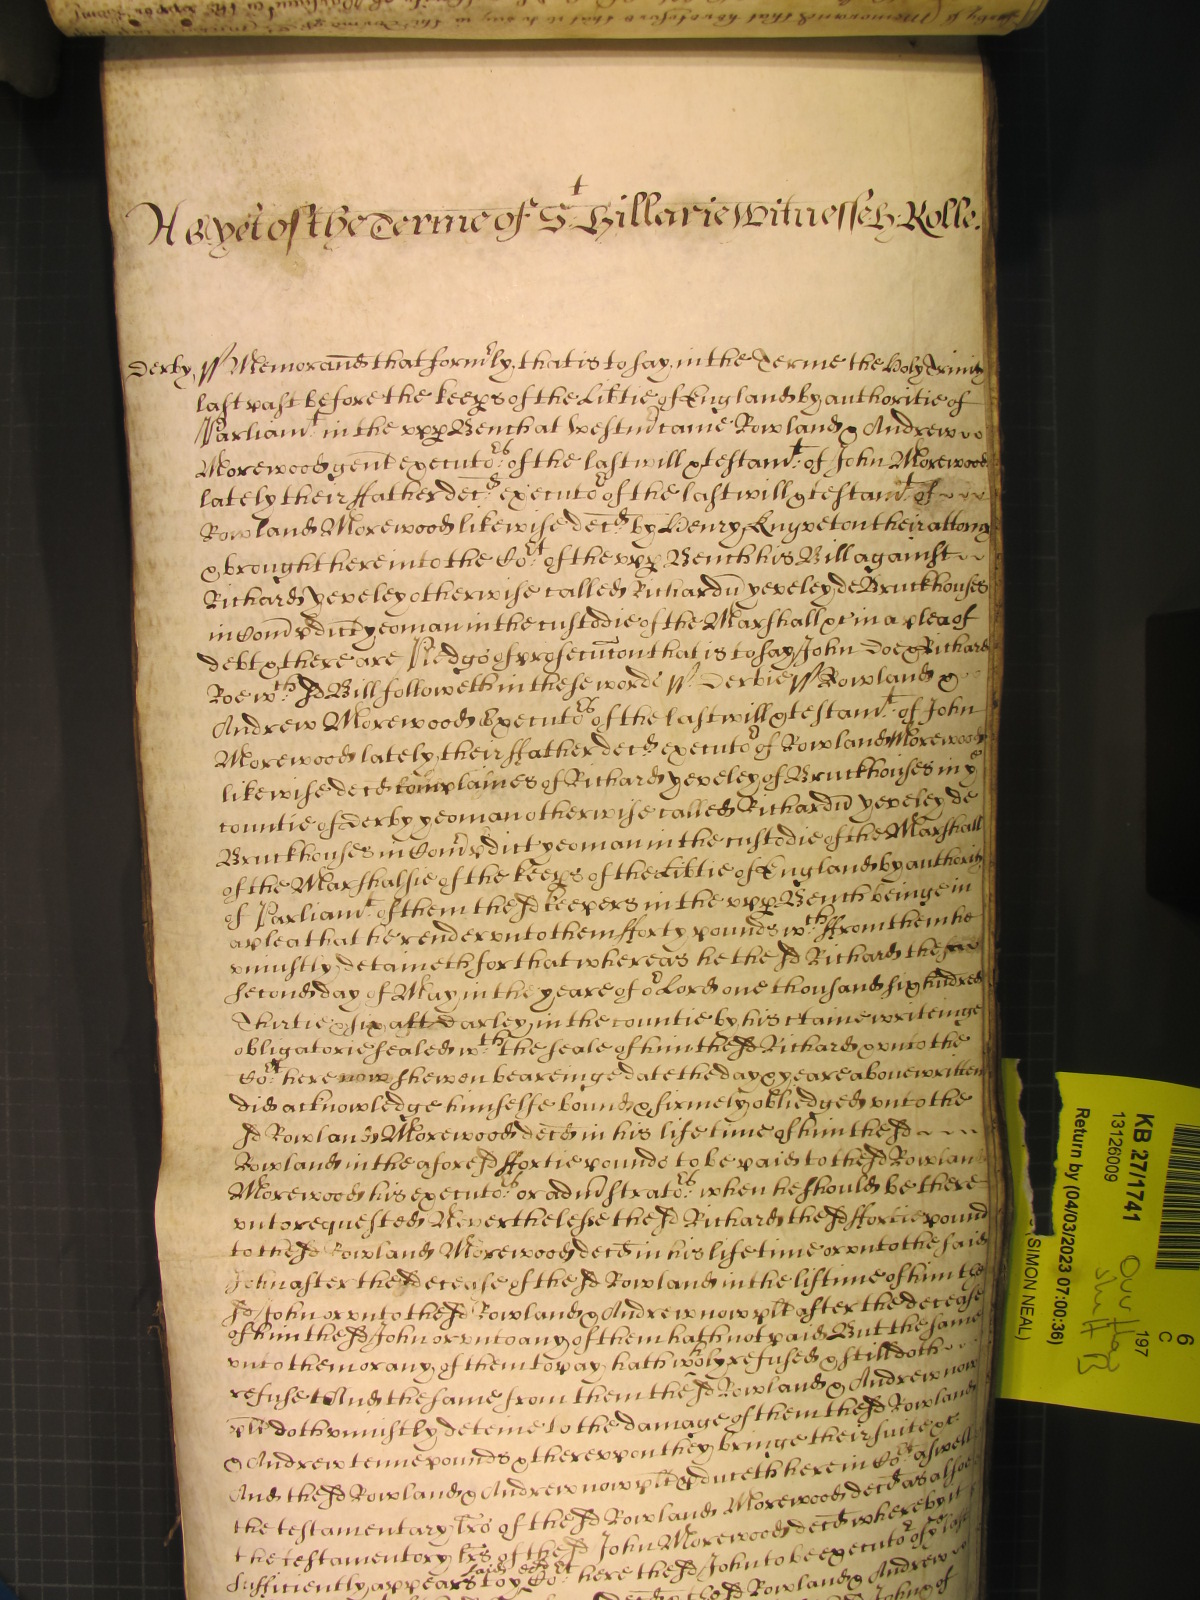 As yet of the Terme of St Hillarie Witnesseth Rolle.
Derby ss Memorand that formly, that is to say, in the Terme the Holy Trinity
last past before the Keeps of the Libtie of England by authoritie of
Parliamt in the upp Bench at Westm came Rowland & Andrew
Morewood gent executors of the last will & testamt of John Morewood
lately their ffather decd executor of the last will & testamt of
Rowland Morewood likewise decd by Henry Knyveton their attorny
& brought here into the Cort of the upp Bench his Bill against
Richard Yeveley otherwise called Richardu Yeveley de Bruckhouses
in Com p dict yeoman in the custodie of the Marshall &c in a plea of
debt & there are Pledgs of prosecucon that is to say John Doe & Richard
Roe wch sd Bill followeth in these words ss Derbie ss Rowland &
Andrew Morewood Executors of the last will & testamt of John
Morewood lately their ffather decd executor of Rowland Morewood
likewise decd complaines of Richard Yeveley of Bruckhouses in ye
countie of Derby yeoman otherwise called Richardu Yeveley de
Bruckhouses in Com p dict yeoman in the custodie of the Marshall
of the Marshalsie of the Keeps of the Libtie of England by authority
of Parliamt of them the sd keepers in the upp Bench beinge in
a plea that he render unto them fforty pounds wch ffrom them he
unjustly detaineth for that whereas he the sd Richard the
second day of May in the yeare of or Lord one thousand six hundred
Thirtie & six att Darley in the countie by his ctaine writeinge
obligatorie sealed wth the seale of him the sd Richard & unto the
Cort here now shewen beareinge date the day & yeare above written
did acknowledge himselfe bound & firmely obliedged unto the
sd Rowland Morewood decd in his life time of him the sd
Rowland in the aforesd ffortie pounds to be paid to the sd Rowland
Morewood his executors or admstrators when he should be there
unto requested Neverthelesse the sd Richard the sd ffortie pound
to the sd Rowland Morewood decd in his life time or unto the said
John after the decease of the sd Rowland in the liftime of him the
sd John or unto the sd Rowland & Andrew now plt after the decease
of him the sd John or unto any of them hath not paid But the same
unto them or any of them to pay hath wholy refused & still doth
refuse And the same from them the sd Rowland & Andrew now
plt doth unjustly deteine to the damage of them the sd Rowland
& Andrew tenne pounds & thereupon they bringe their suite &c
And the sd Rowland & Andrew now plt pduceth here in Cort aswell
the testamentary lrs of the sd Rowland Morewood decd as alsoe
the testamentory lrs of the sd John Morewood decd whereby it
sufficiently appears to ye said Cort here the sd John to be executor of ye last
decd & the sd Rowland & Andrew
John of
KB 27/1741
13126009
Return by (04/03/2023 07:00:36)
(SIMON NEAL)
197
6
C